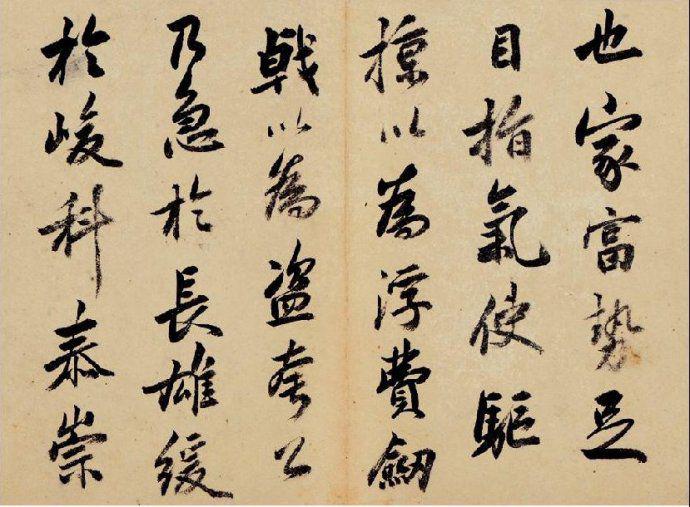 也家富勢足
目指氣使驅
掠以為浮費劒
戟以為盜夸公
乃急於長雄緩
於峻科恭崇